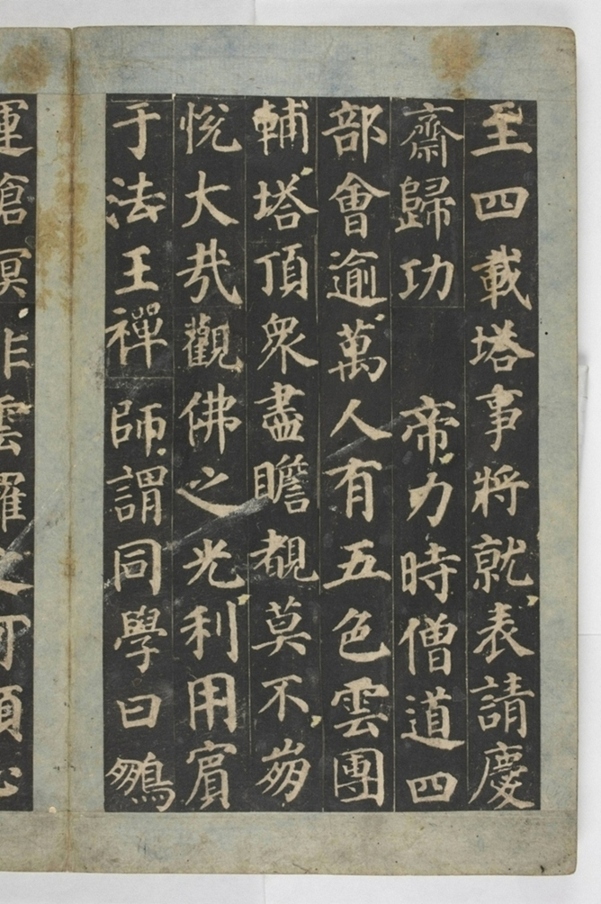 至四載塔事將就表請慶
齋歸功　帝力時僧道四
部會逾萬人有五色雲團
輔塔頂衆盡瞻覩莫不崩
悅大哉觀佛之光利用賓
于法王禪師謂同學曰鵬
運滄溟非雲羅之可頓心